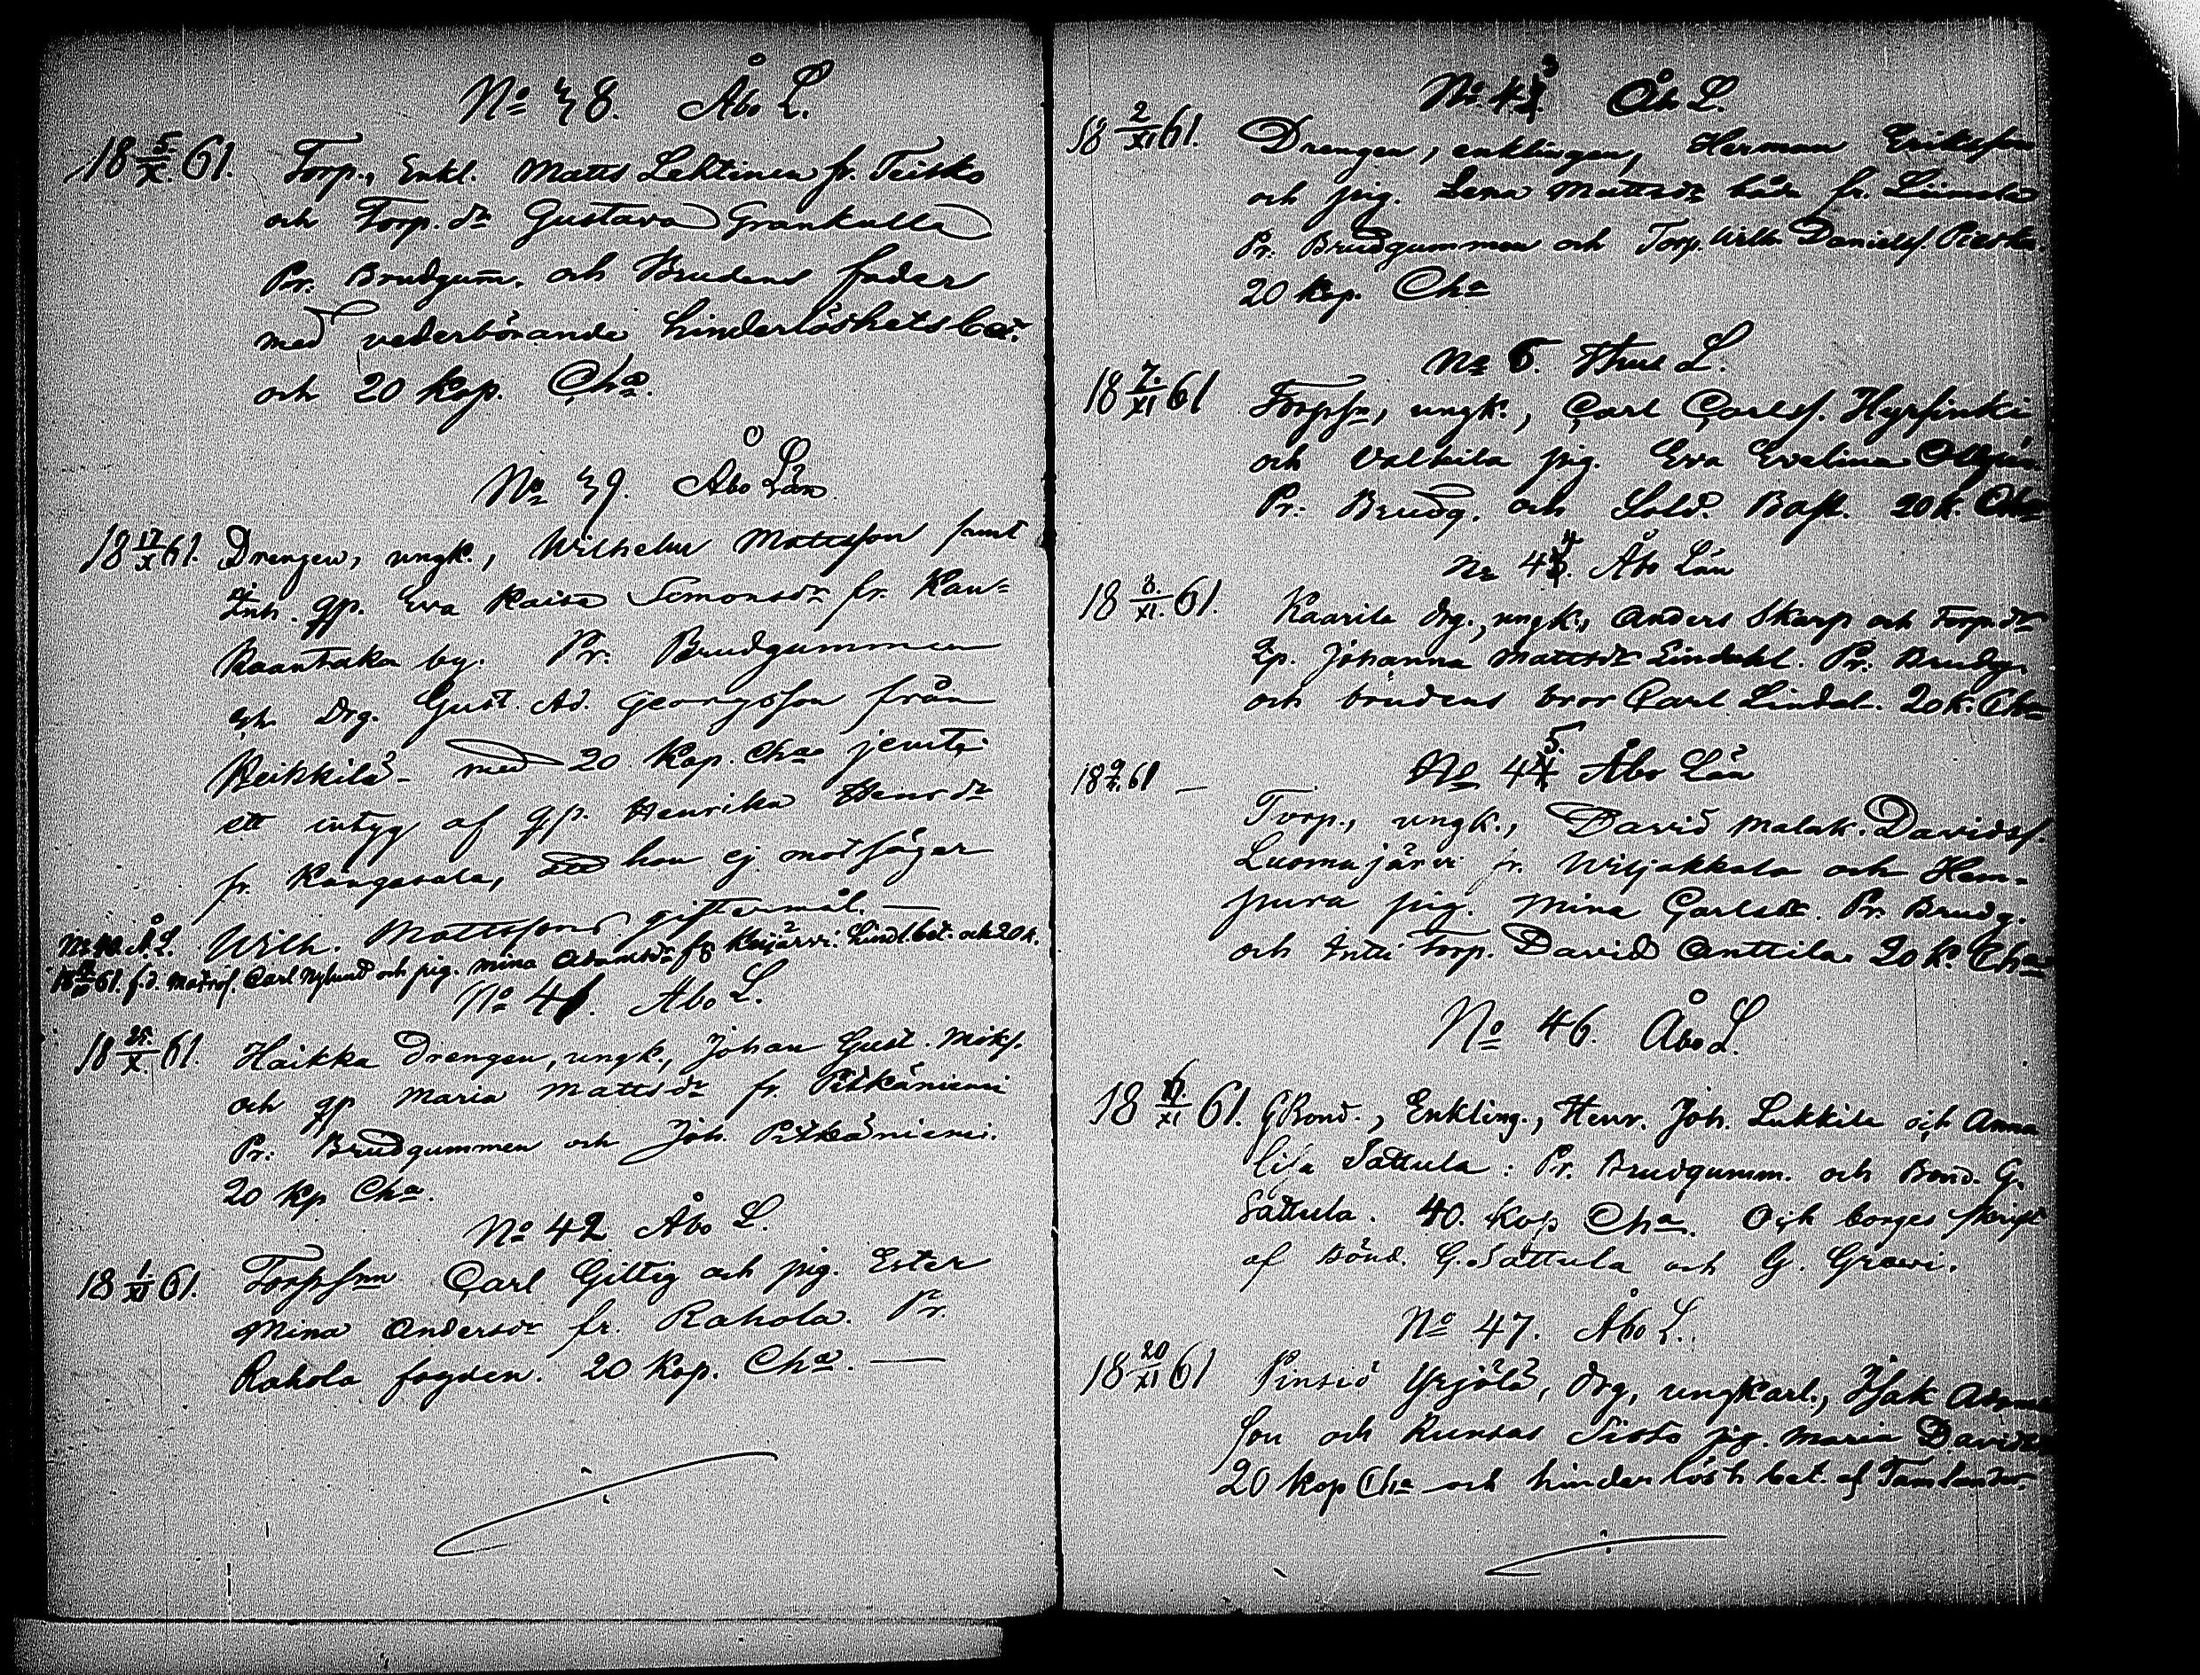 No 38. Åbo L.
18 5/X. 61. Torp., Enkl. Matts Lehtinen fr. Teisko
och Torp. dr Gustava Grankulla
Pr. Brudgum̄. och Brudens fader
med vederbörande hinderlöshetsbet.
och 20 Kop. Cha.
No 39. Åbo Län
18 17/X 61. Drengen, ungk., Wilhelm Mattsson samt
Inh. qp. Eva Kaisa Simonsdr fr. Kau-
Raantaka by. Pr. Brudgummen
och Drg. Gust. Ad. Georgsson från
Heikkilä - med 20 Kop. Cha jemte
ett intyg af qp. Henrika Henrsdr
fr. Kangasala, att hon ej motsäger
Wilh. Mattssons giftermål. —
No 40. Å. L.
61. f.d. Matros. Carl Nylund och pig. Mina Adamsdr fr Keijärvi. Hindl.bet. och 20 k.
No 41. Åbo L.
18 25/X. 61. Haikka Drengen, ungk., Johan Gust.
och qp Maria Mattsdr fr. Pitkäniemi
Pr. Brudgummen och Joh. Pitkäniemi.
20 kp Cha.
No 42 Åbo L.
18 1/XI 61. Torpson Carl Gittig och pig. Ester
Mina Andersdr fr. Rahola. Pr.
Rahola fogden. 20 Kop. Cha. —
No 43 Åb L.
18 2/XI 61. Drengen, enklingen, Herman Eriksson
och pig. Lena Mattsdr båda fr. Liimola
Pr. Brudgummen och Torp. Wilh. Daniels.
20 Kop. Cha
No 6. Thus L.
18 7/XI 61 Torpsn, ungk., Carl Carls. Hyrsinki
och Valkila pig. Eva Evelina
Pr. Brudg. och Sold. Bask. 20 k. Cha
No 44. Åbo Län
18 8/XI. 61. Kaarila drg., ungk., Anders Skarp och Torp. dr
qp. Johanna Mattsdr Lindahl. Pr. Brudg.
och brudens bror Carl Lindal. 20 k. Cha
No 45 Åbo Län
18 9/XI 61 — Torp., ungk., David Malak. Davids.
Luomajärvi fr. Wiljakkala och Hem-
pura pig. Mina Carlsdr. Pr. Brudg.
och Intti Torp. David Anttila 20 k. Cha
No 46. Åbo L.
18 /XI 61. GBond., Enkling., Henr. Joh. Lukkila och Anna
Lisa Sattula: Pr. Brudgumm. och Bond. G.
Sattula. 40. Kop Cha. Och borges skrift
af Bönd. G. Sattula och G. Grawi.
No 47. Åbo L.
18 20/XI 61 Pinsiö Yrjölä, drg, ungkarl., Isak Adam
son och Runsas Tiisto pig. Maria Davids
20 Kop Cha och hinderlösh bet. af